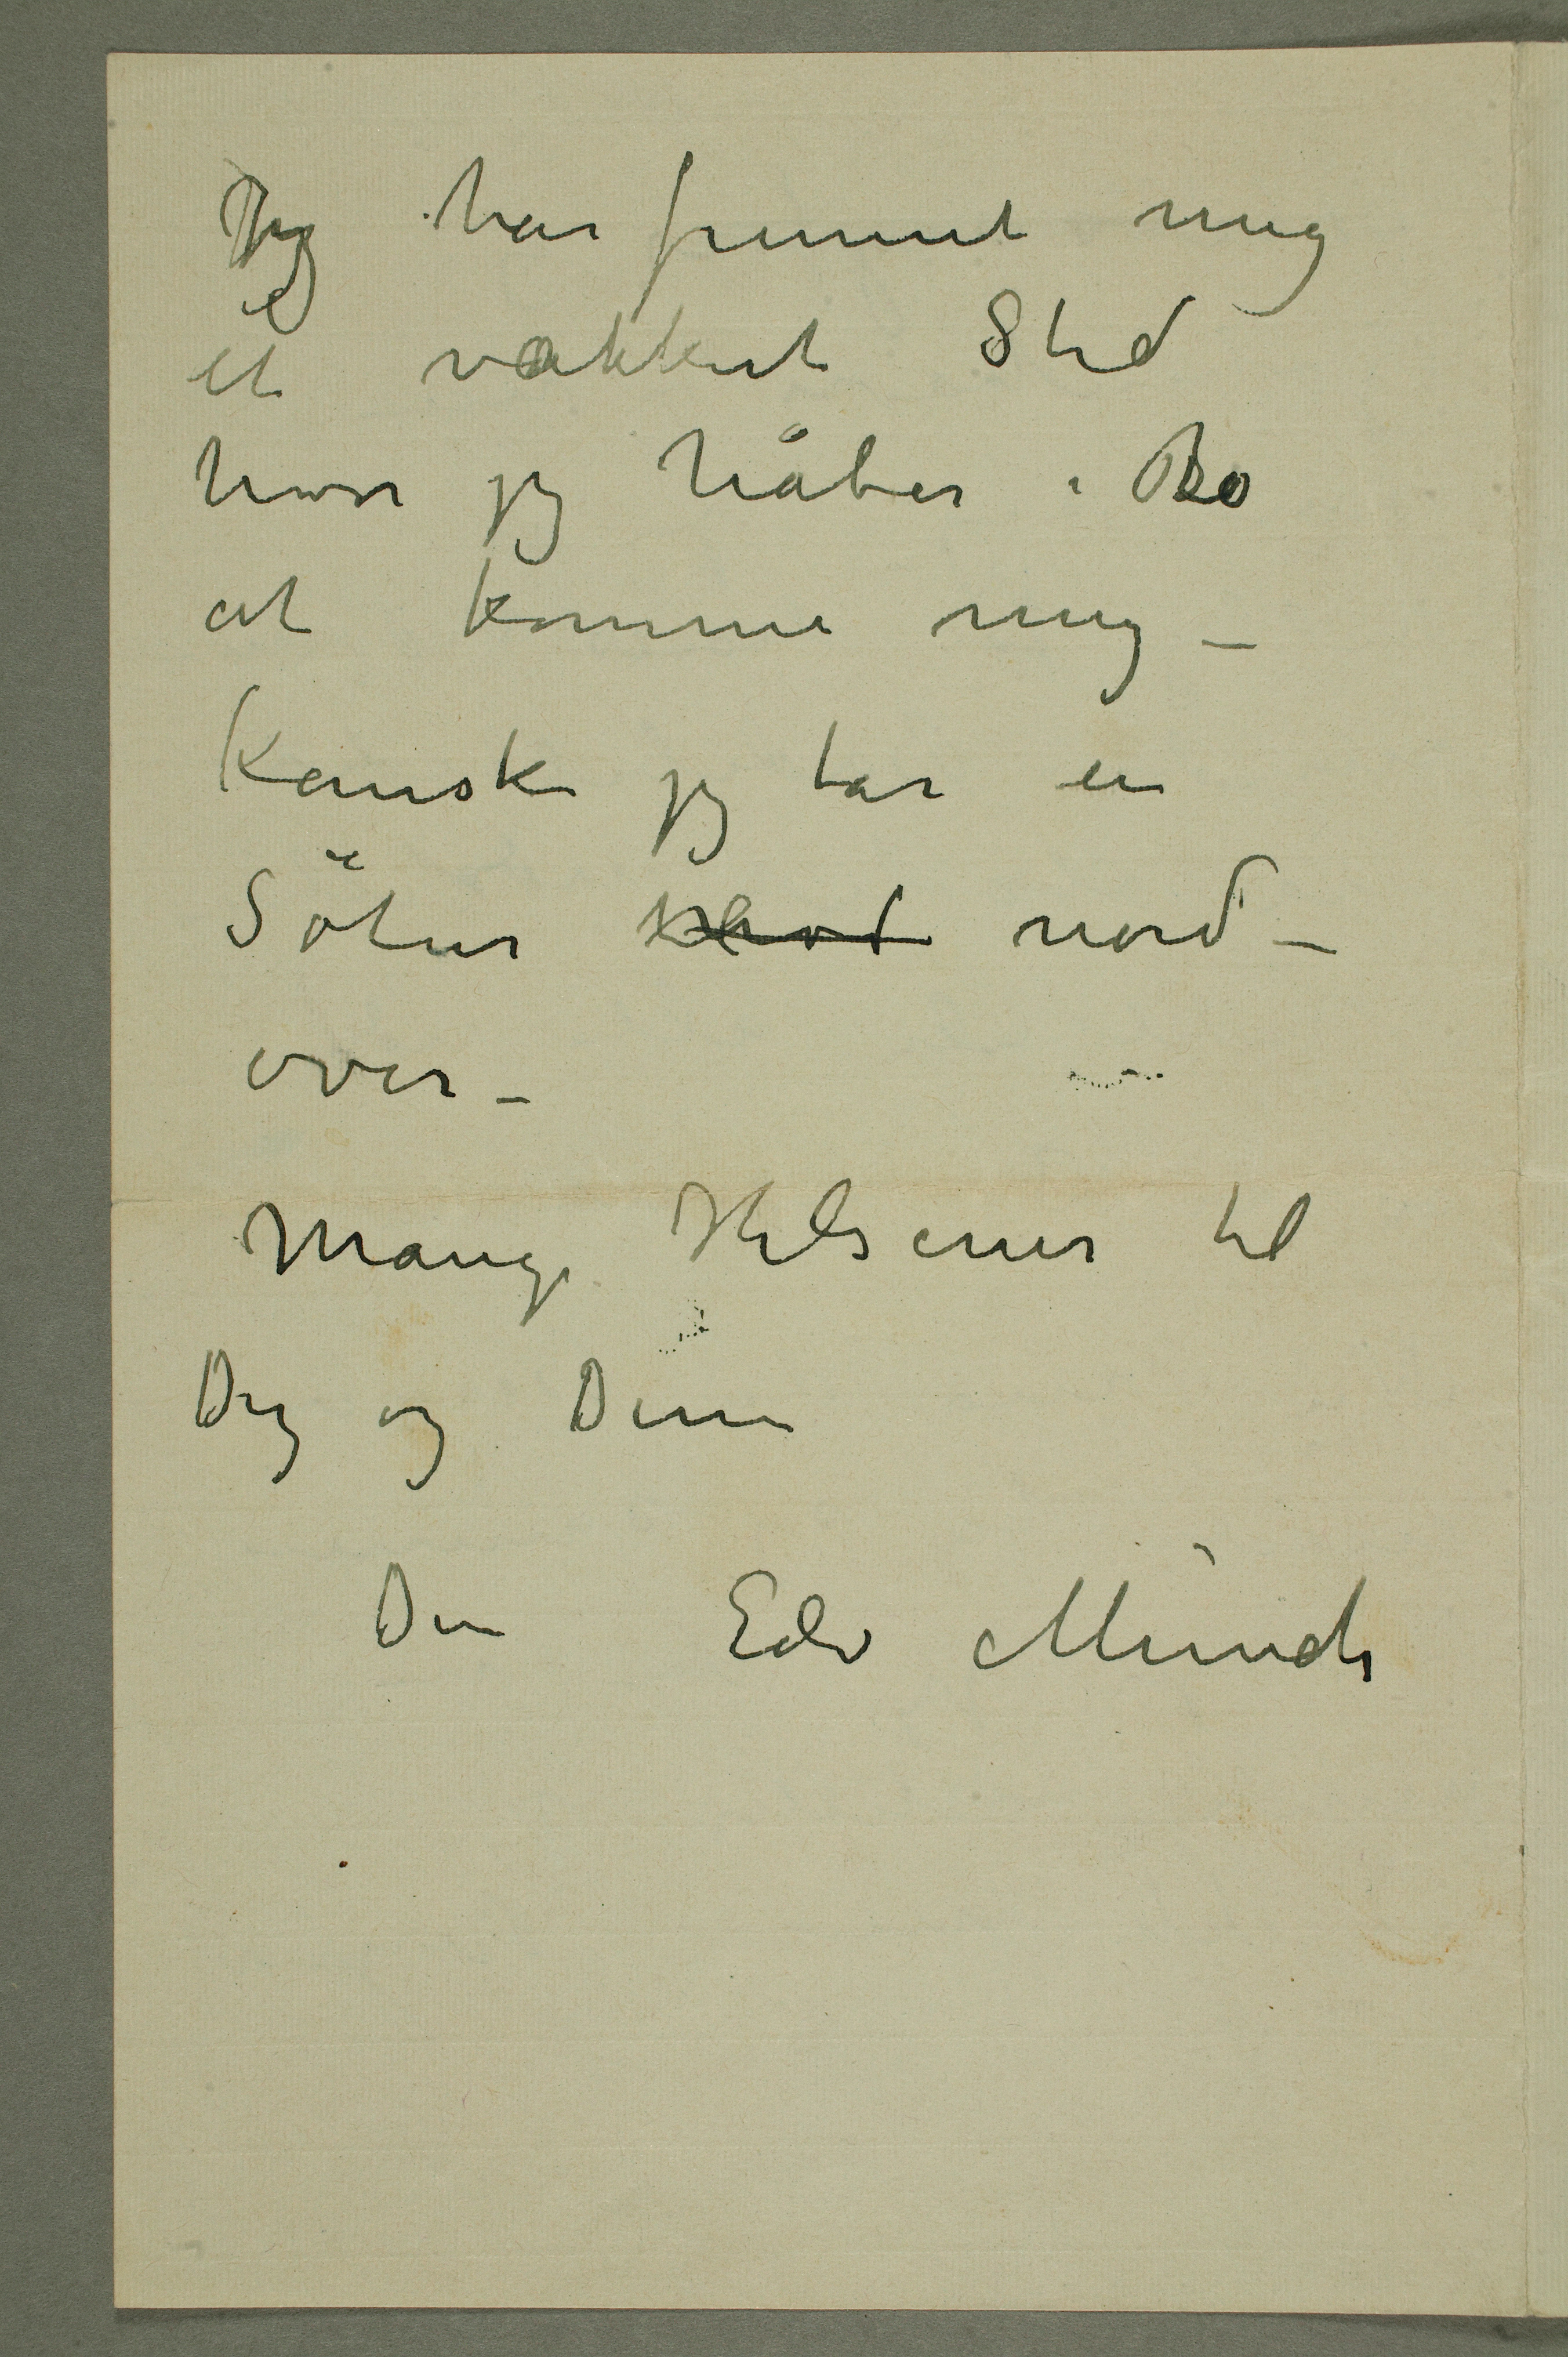 Jeg har funnet mig
et vakkert Sted
hvor jeg håber i Ro
at komme mig –
Kanske jeg tar en
Sötur nord–
over –
Mange Hilsener til
Dig og Dine
Din Edv Munch